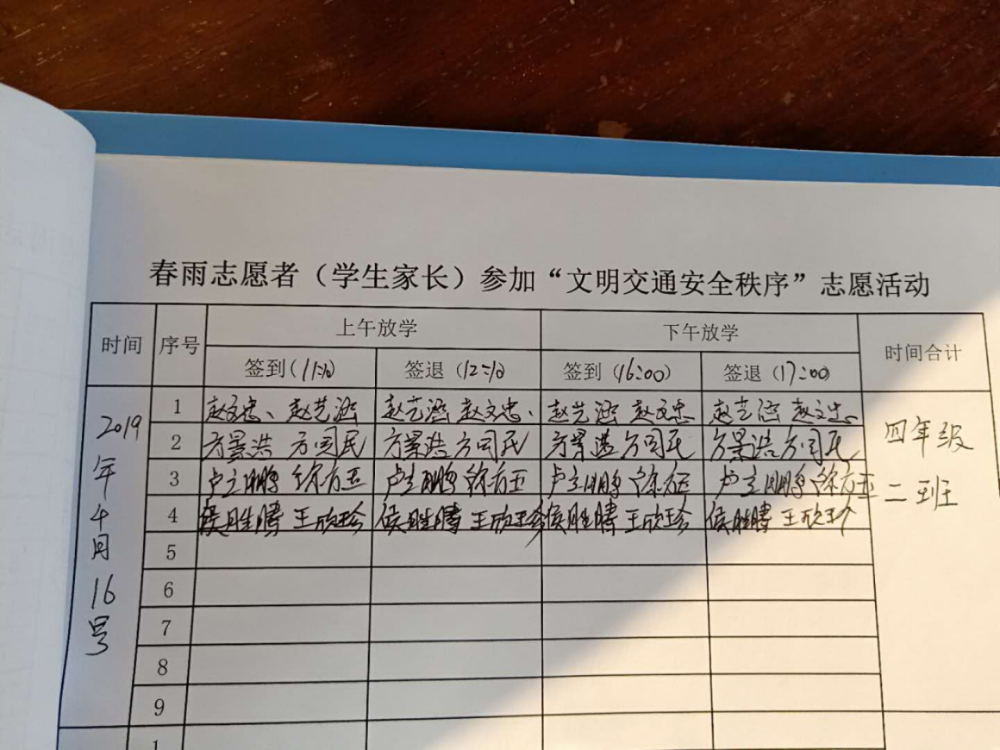 春雨志愿者（学生家长）参加“文明交通安全秩序”志愿活动
时间 序号 上午放学 下午放学 时间合计
签到（11:10） 签退（12:10） 签到（16:00） 签退（17:00）
2019年4月16号
1 赵文忠、赵艺涵 赵艺涵 赵文忠、 赵艺涵 赵文忠 赵艺涵 赵文忠
2 方景浩 方同民 方景浩 方同民 方景浩 方同民 方景浩 方同民
3 卢立鹏 徐有玉 卢立鹏 徐有玉 卢立鹏 徐有玉 卢立鹏 徐有玉
4 侯胜腾 王欣珍 侯胜腾 王欣珍 侯胜腾 王欣珍 侯胜腾 王欣珍
四年级
二班
5
6
7
8
9
1